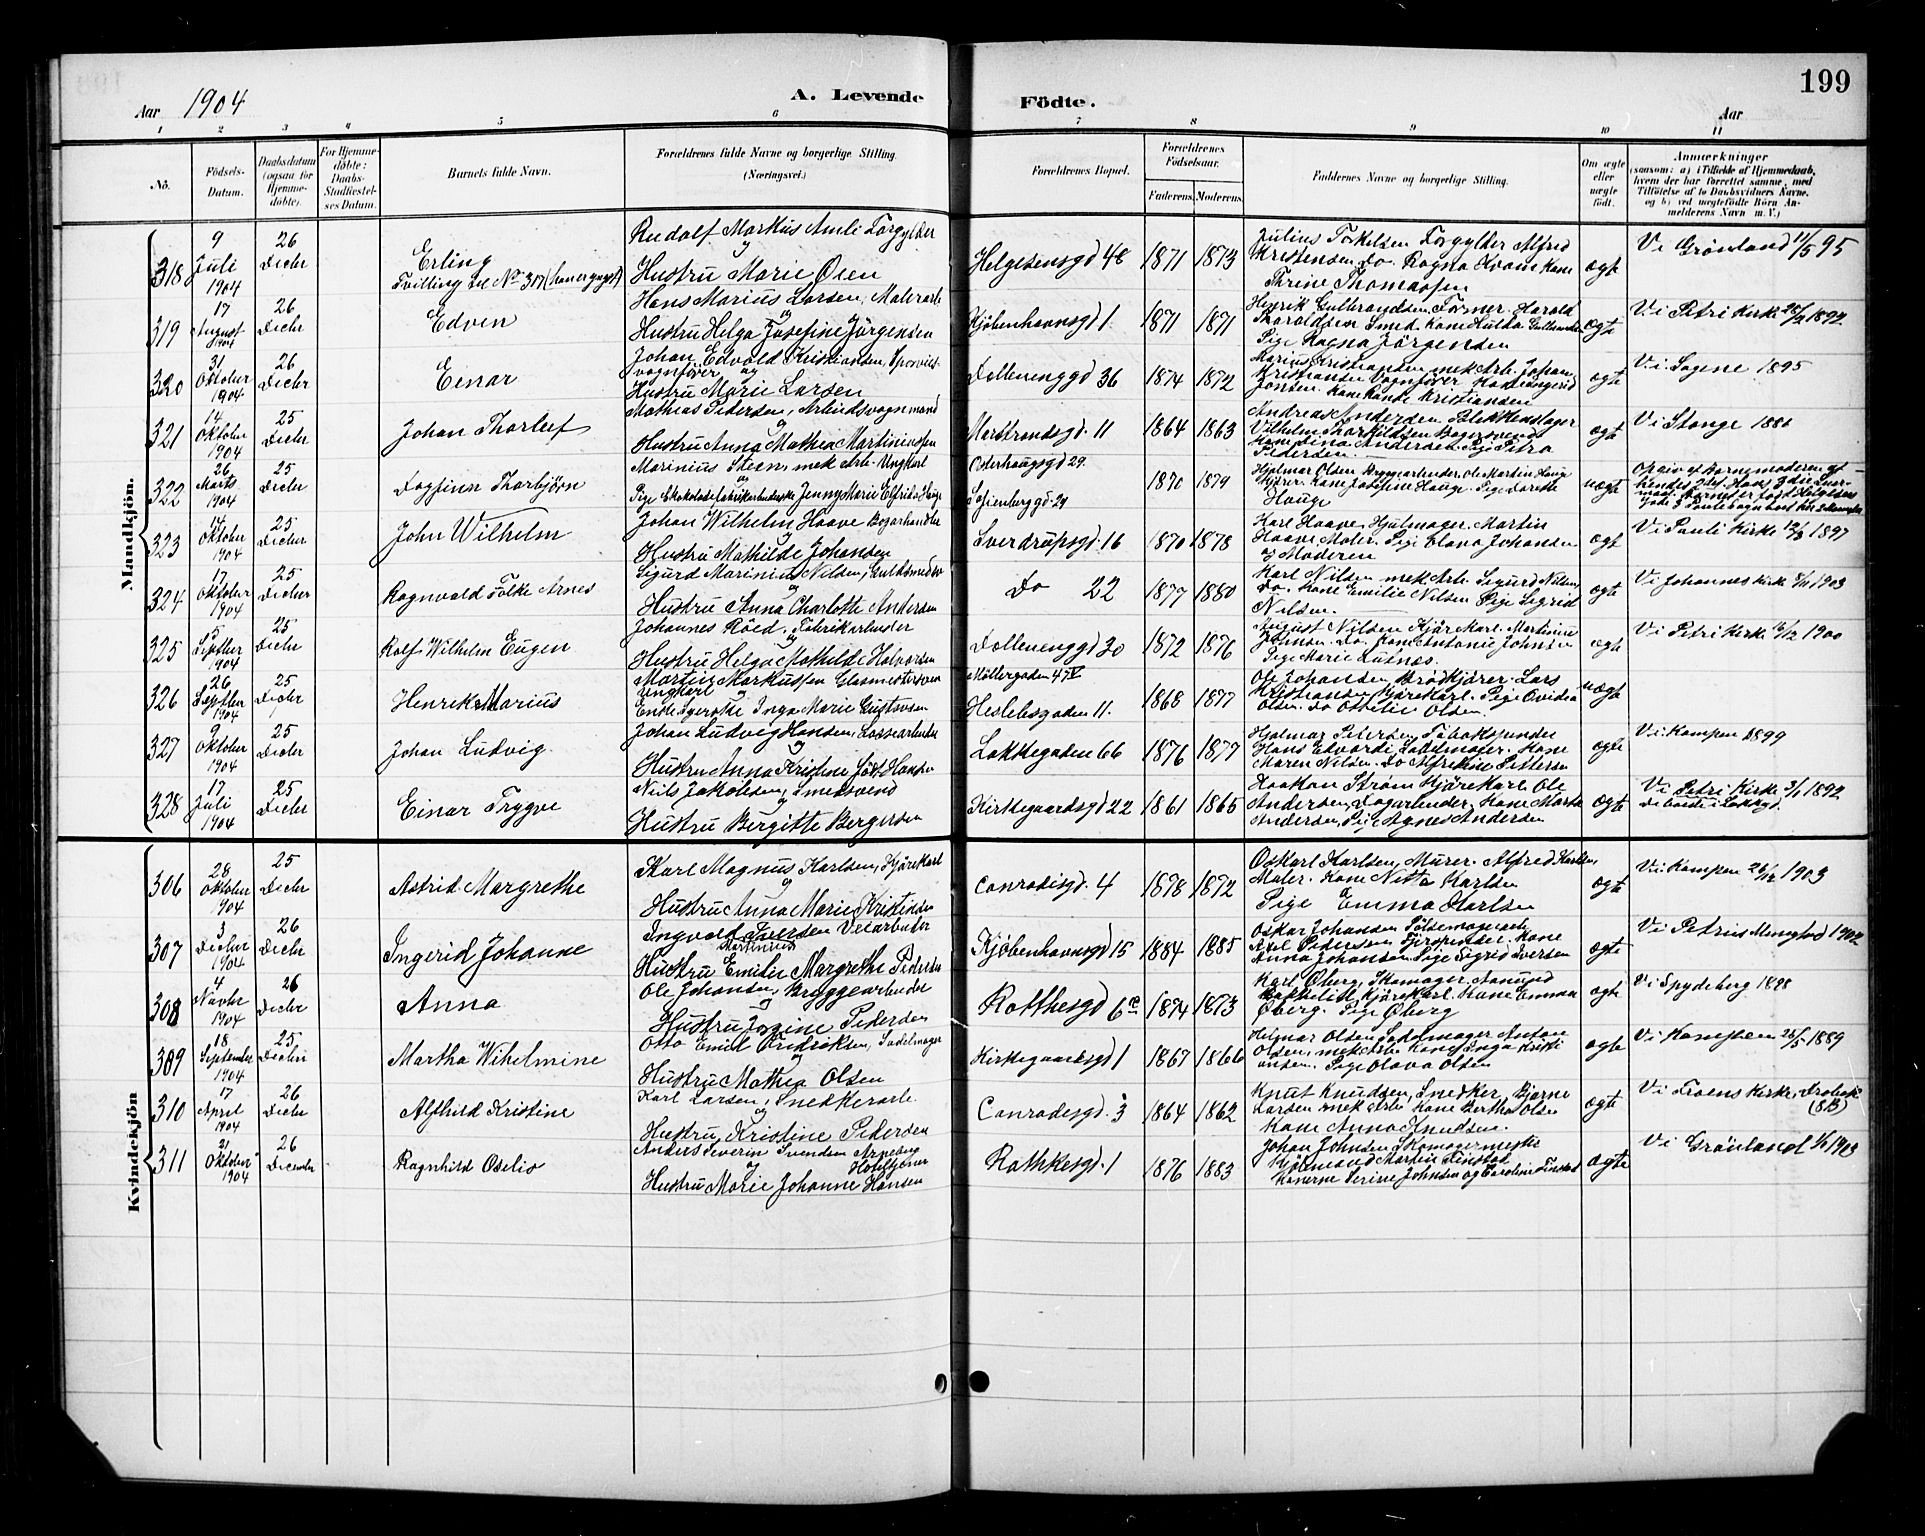 199
Aar 1904
A. Levende Födte.
Aar
1 2 3 4 5 6 7 8 9 10 11
No.
Födsels-Datum.
Daabsdatum (ogsaa för Hjemmedöbte).
For Hjemmedöbte: Daabs-Stadfæstelses Datum.
Barnets fulde Navn.
Forældrenes fulde Navne og borgerlige Stilling. (Næringsvei.)
Forældrenes Bopæl.
Forældrenes Födselsaar.
Faderens. Moderens.
Faddernes Navne og borgerlige Stilling.
Om ægte eller uægte födt.
Anmærkninger
(saasom: a) i Tilfælde af Hjemmedaab, hvem der har forrettet samme, med Tilföielse af to Daabsvidners Navne, og b) ved uægtefödte Börn Anmelderens Navn m. V.)
Mandkjön.
318 9 Juli 1904 26 Decbr Erling Tvilling til No 317 (havergugst) Rudolf Markus Amli Forgylder og Hustru Marie Oien Helgesensgd 48 1871 1873 Julius Torkelsen Forgylder Alfred Kristensen Do. Ragna Kvam Kone Thrine Thomassen ægte Vi Grönland 11/5 95
319 17 August 1904 26 Decbr Edven Hans Marius Larsen, Malerarb og Hustru Helga Josefine Jörgensen Kjöbenhavnsgd 1 1871 1871 Henrik Gulbrandsen Former Harald Haraldsen Smed. Kone Hulda Gulbrandsen Pige Ragna Jörgensen ægte Vi Petri Kirke 1892
320 31 Oktober 1904 26 Decbr Einar Johan Edvald Kristiansen, Sporveisvognförer og Hustru Marie Larsen Dælenenggd 36 1874 1872 Marius Kristiansen mek Arb. Johan Kristiansen Vognförer Kone Ingerid Jonsen. Kone Kristiansen ægte Vi Sagene 1895
321 14 Oktober 1904 25 Decbr Johan Thorleif Mathias Pedersen, Arbeidsvognmand og Hustru Anna Mathea Martiniussen Marstrandsgd. 11 1864 1863 Andreas Andersen Blikkenslager Vilhelm Thorkildsen Bagersvend Kone Dina Andersen. Pige Petra Pedersen. ægte Vi Stange 1886
322 26 Marts 1904 25 Decbr Dagfinn Thorbjörn Marinius Steen, mek Arb. Ungkarl og Pige Chokoladefabrikarbeiderske Jenny Marie Elfrida Hauge Osterhausgd 29. Sofienberggd. 29 1870 1879 Hjalmar Olsen Bryggearbeider, Ole Martin Hauge Kjörer. Kone Josefine Hauge. Pige Dorette Hauge uægte
323 14 Oktober 1904 25 Decbr John Wilhelm Johan Wilhelm Haave Bogarhandler og Hustru Mathilde Johansen Sverdrupsgd. 16 1870 1878 Karl Haave, Hjulmager. Martin Haave Maler. Pige Olava Johansen og Moderen ægt Vi Pauli Kirke 12/3 1897
324 17 Oktober 1904 25 Decbr Ragnvald Folke Arnes Sigurd Marinius Nilsen, Guldsmedsv og Hustru Anna Charlotte Andersen Do 22 1877 1880 Karl Nilsen mek Arb. Sigurd Nilsen, Do. Kone Emilie Nilsen Pige Sigrid Nilsen. ægte Vi Johannes Kirke 8/11 1903
325 5 Septber 1904 25 Decbr Rolf Wilhelm Eugen Johannes Röed, Fabrikarbeider og Hustru Helga Mathilde Halvorsen Dælenenggd 30 1872 1876 August Nilsen Kjörekarl. Martinius Johnsen Do. Kone Antonie Johnsen Pige Marie Lutnæs. ægte Vi Petri Kirke 16/12 1900
326 26 Septber 1904 25 Decbr Henrik Marius Martin Markussen Glasmestersvend Ungkarl og Enke Sygerske Inga Marie Gustavsen Möllergaden 47 Heslebsgaden 11. 1868 1877 Ole Johansen Brödkjörer. Lars Kristiansen Kjörekarl. Pige Ovidia Olsen. Do Othelie Olsen. uægte
327 9 Oktober 1904 25 Decbr Johan Ludvig Johan Ludvig Hansen, Lossearbeider og Hustru Anna Kristine født Hansen Lakkegaden 66 1876 1877 Hjalmar Petersen Tobakspinder Hans Edvardt, Sadelmager. Kone Maren Nilsen. Do Alfredine Pettersen ægte Vi Kampen 1899
328 17 Juli 1904 25 Decbr Einar Trygve Niels Jakobsen, Smedsvend og Hustru Bergitte Bergersen Kirkegaardsgd 22 1861 1865 Haakon Ström Kjörekarl Ole Andersen, Dagarbeider, Kone Marta Andersen, Pige Agnes Andersen ægte Vi Petri Kirke 3/1 1892 De boede i Lakkgd.
Kvindekjön
306 28 Oktober 1904 25 Decbr Astrid Margrethe Karl Magnus Karlsen, Kjörekarl og Hustru Anna Marie Kristensen Conradisgd. 4 1878 1872 Oskarl Karlsen, Murer. Alfred Karlsen, Maler. Kone Nitta Karlsen Pige Emma Karlsen ægte Vi Kampen 26/12 1903
307 3 Decber 1904 26 Decbr Ingerid Johanne Ingvald Martinius Iversen Veiarbeider Hustru Emilie Margrethe Pedersen Kjöbenhavnsgd 15 1884 1885 Oskar Johansen Pölsemagerarb Axel Pedersen Gjörspinder. Kone Anna Johansen Pige Sigrid Iversen ægte Vi Petrus Menighed 1902
308 4 Novbr 1904 26 Decbr Anna Ole Johansen, Bryggearbeider og Hustru Jozine Pedersen Rathkesgd 6 1874 1873 Karl Öberg, Skomager. Kjörekarl. Kone Emma Öberg. Pige Öberg ægte Vi Spydeberg 1898
309 18 September 1904 25 Decbr Martha Wihelmine Otto Emil Fredriksen, Sadelmager og Hustru Mathea Olsen Kirkegaardsgd 1 1867 1866 Helmar Olsen Sadelmager Anton Olsen, mek Arb. Kone Inga Kristiansen. Pige Olava Olsen ægte Vi Kampen 26/5 1889
310 17 April 1904 26 Decbr Alfhild Kristine Karl Larsen, Snedkerarb. og Hustru, Kristine Pedersen Conradisgd. 3 1864 1862 Knut Knudsen, Snedker, Bjarne Larsen mek Arb. Kone Bertha Olsen Kone Anna Knudsen. ægte Vi Froens Kirke, Dröbak
311 21 Oktober 1904 26 December Ragnhild Oselio Anders Severin Svendsen Arneberg Hotelkjener og Hustru Marie Johanne Hansen Rathkesgd. 1 1876 1883 Johan Johnsen Skomagermester Kjöbmand Martin Finstad Konerne Serine Johnsen og Caroline Finstad ægte Vi Grönland 1/1 1903